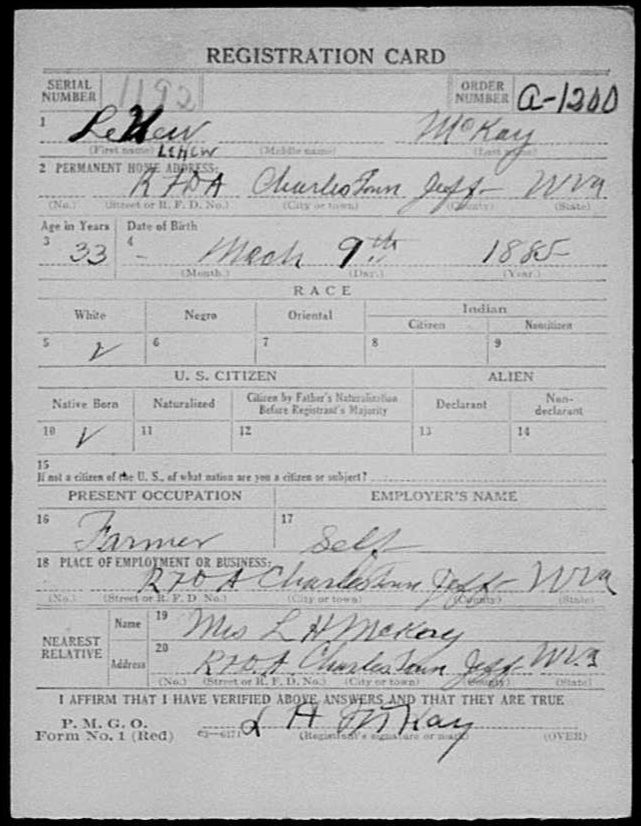 REGISTRATION CARD
SERIAL NUMBER 1192 ORDER NUMBER A-1200
1 LeHew McKay
(First name) LEHEW (Middle name) (Last name)
2 PERMANENT HOME ADDRESS:
R F D A Charles Town Jeff W Va
(No.) (Street or R. F. D. No.) (City or town) (County) (State)
Age in Years Date of Birth
3 33 4 - Mach 9th 1885
(Month.) (Day.) (Year.)
RACE
White Negro Oriental Indian
Citizen Noncitizen
5 ✓ 6 7 8 9
U. S. CITIZEN ALIEN
Native Born Naturalized Citizen by Father's Naturalization Before Registrant's Majority Declarant Non-declarant
10 ✓ 11 12 13 14
15
If not a citizen of the U. S., of what nation are you a citizen or subject?
PRESENT OCCUPATION EMPLOYER'S NAME
16 Farmer 17 Self
18 PLACE OF EMPLOYMENT OR BUSINESS:
R F D A Charles Town Jeff W Va
(No.) (Street or R. F. D. No.) (City or town) (County) (State)
NEAREST RELATIVE
Name 19 Mrs L H McKay
Address 20 R F D A Charles Town Jeff W Va
(No.) (Street or R. F. D. No.) (City or town) (County) (State)
I AFFIRM THAT I HAVE VERIFIED ABOVE ANSWERS AND THAT THEY ARE TRUE
P. M. G. O.
Form No. 1 (Red) 03—6171 L H McKay
(Registrant's signature or mark) (OVER)